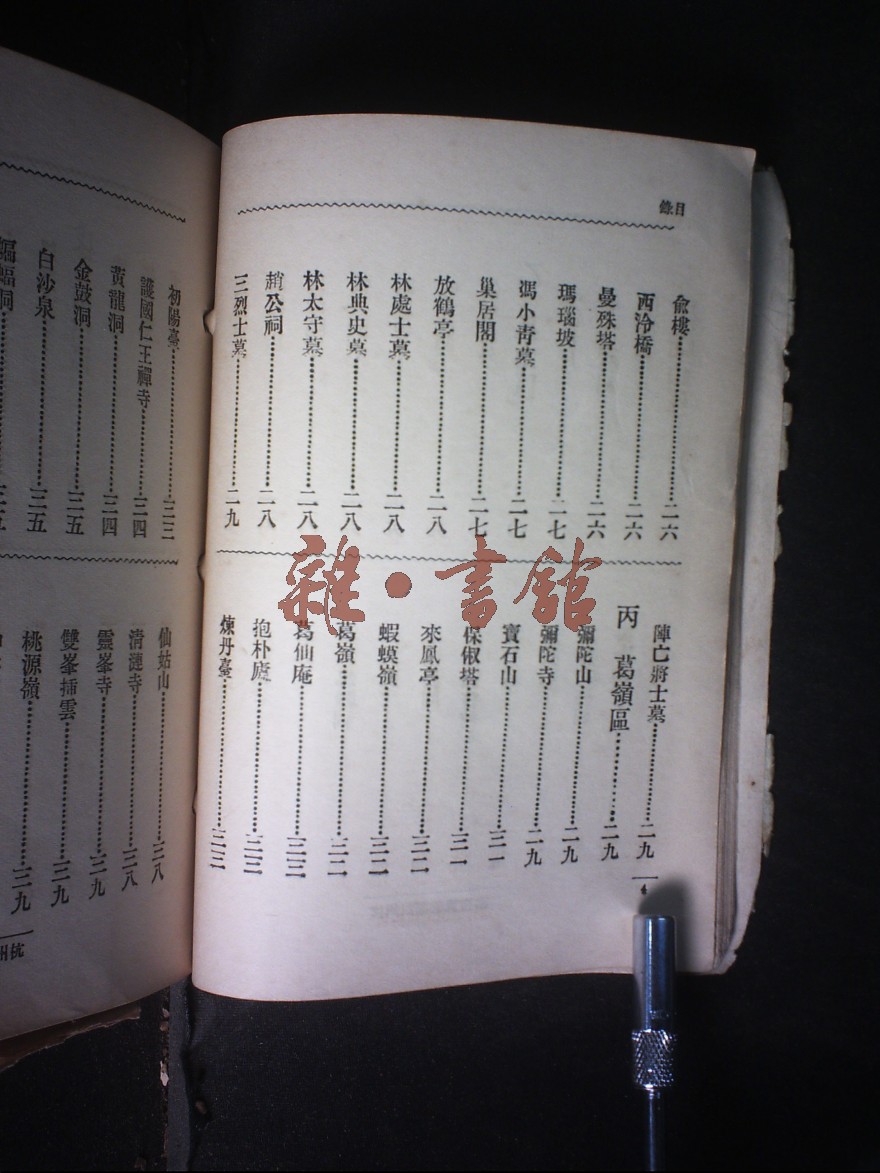 目錄
俞樓 二六
西泠橋 二六
曼殊塔 二六
瑪瑙坡 二七
馮小青墓 二七
巢居閣 二七
放鶴亭 二八
林處士墓 二八
林典史墓 二八
林太守墓 二八
趙公祠 二八
三烈士墓 二九
陣亡將士墓 二九
丙 葛嶺區 二九
彌陀山 二九
彌陀寺 二九
寶石山 三一
保俶塔 三一
來鳳亭 三二
蝦蟆嶺 三二
葛嶺 三二
葛仙庵 三三
抱朴廬 三三
煉丹臺 三三
初陽臺 三三
護國仁王禪寺 三四
黃龍洞 三四
金鼓洞 三五
白沙泉 三五
蝙蝠洞
仙姑山 三八
清漣寺 三八
靈峯寺 三九
雙峯插雲 三九
桃源嶺 三九
杭州
雜·書館